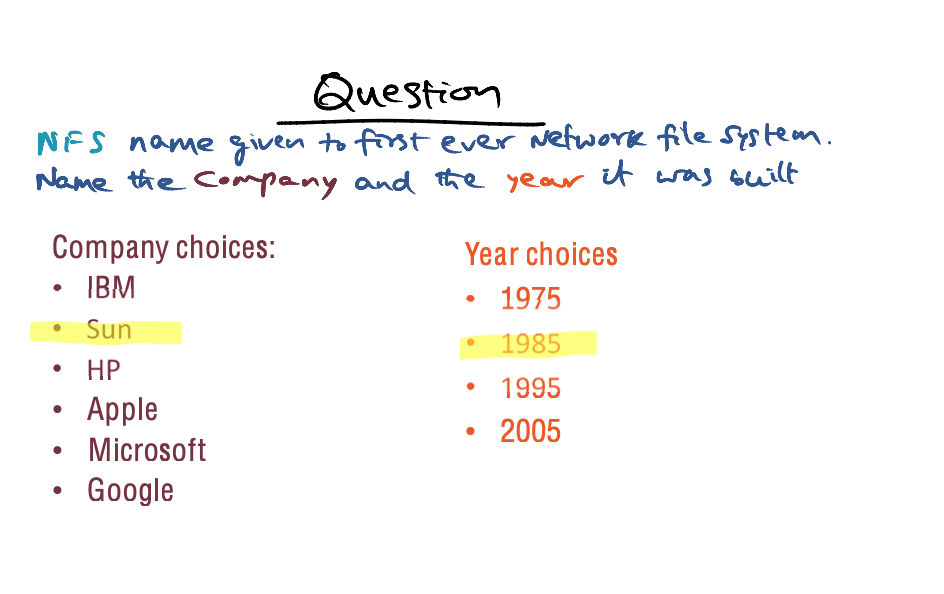 Question
NFS name given to first ever network file system.
Name the Company and the year it was built
Company choices:
• IBM
• Sun
• HP
• Apple
• Microsoft
• Google
Year choices
• 1975
• 1985
• 1995
• 2005